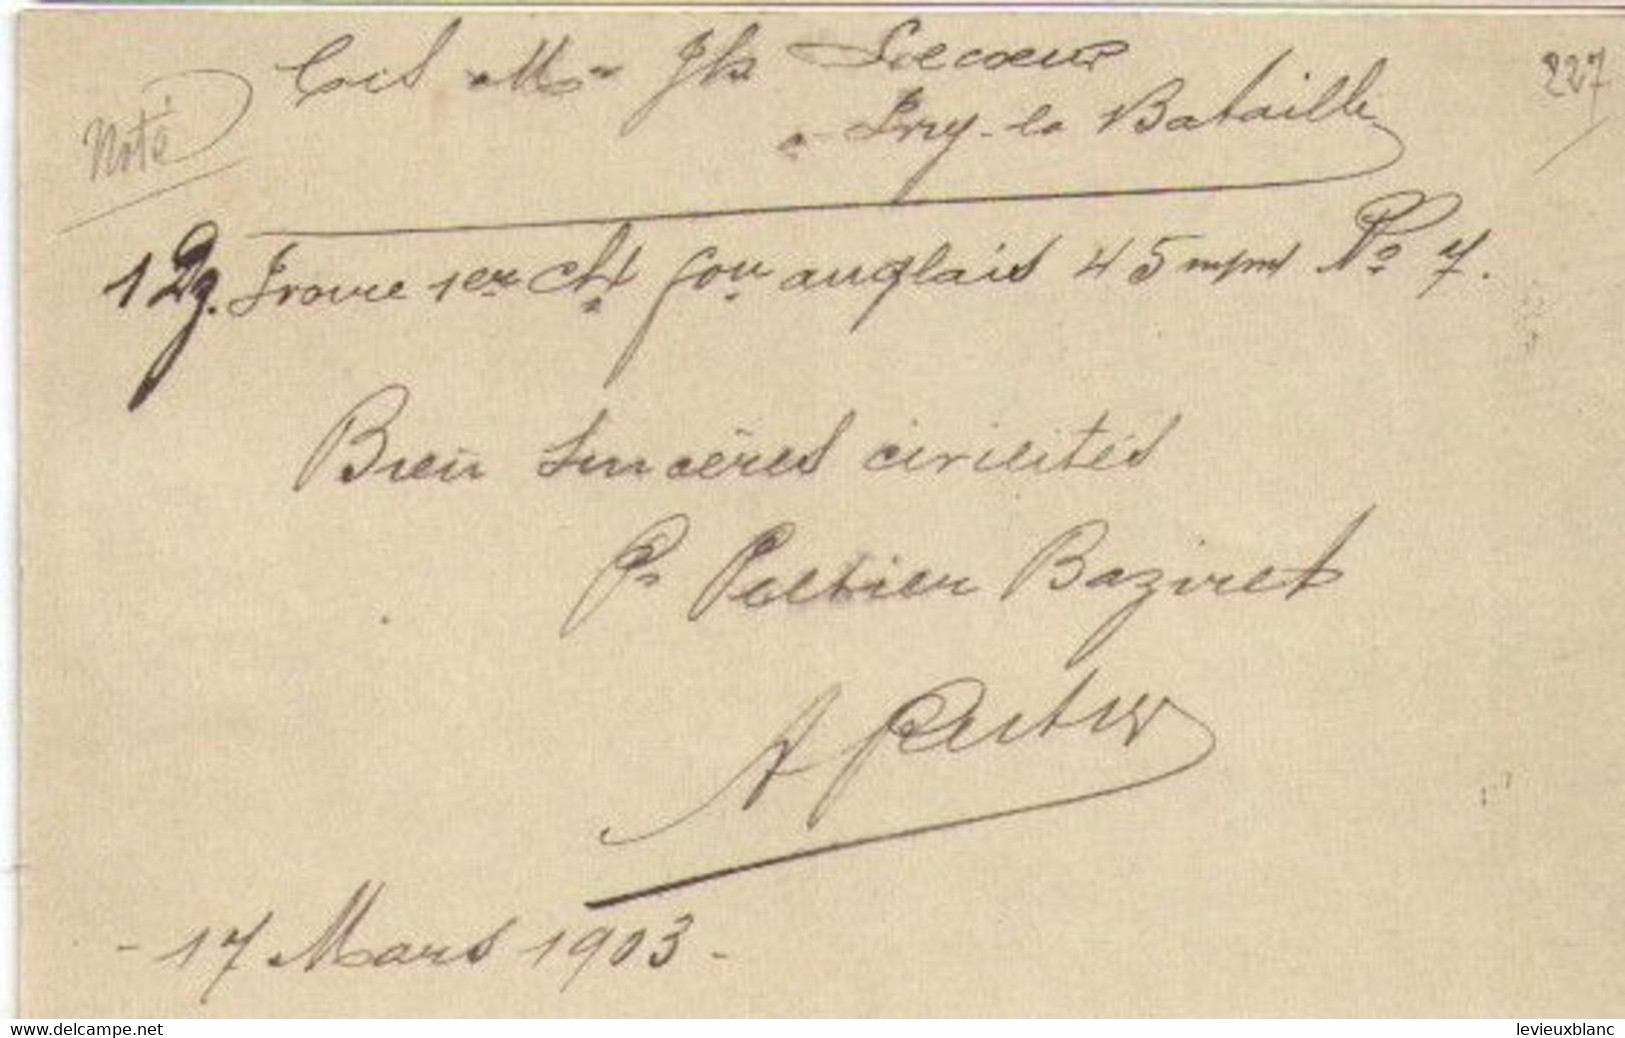 Noté
Mr Jh Lecoeur
227
a Ivry-la Bataille
1 Dg. Ivoire 1er Ch faç anglais 45 m/m No 7.
Bien sincères civilités
Pr Peltier Baziret
A Peltier
- 17 Mars 1903 -
www.delcampe.net
levieuxblanc